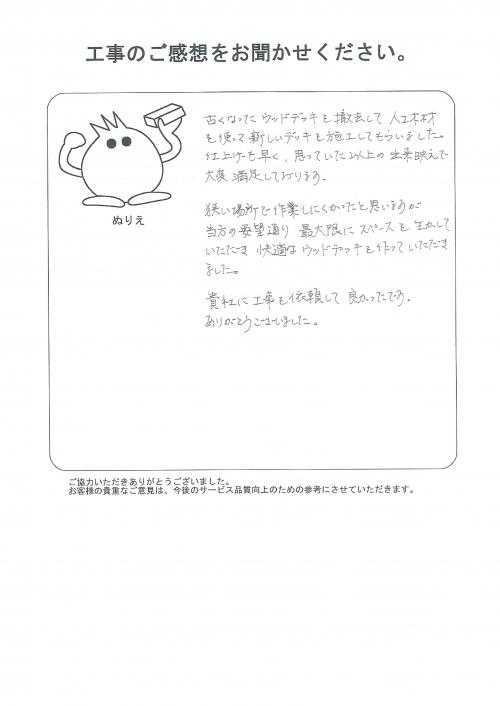 工事のご感想をお聞かせください。
古くなったウッドデッキを撤去して人工木材
を使って新しいデッキを施工してもらいました。
仕上げも早く、思っていた以上の出来映えで
大変満足しております。
狭い場所で作業しにくかったと思いますが
当方の要望通り最大限にスペースを生かして
いただき快適なウッドデッキを作っていただき
ました。
貴社に工事を依頼して良かったです。
ありがとうございました。
ぬりえ
ご協力いただきありがとうございました。
お客様の貴重なご意見は、今後のサービス品質向上のための参考にさせていただきます。